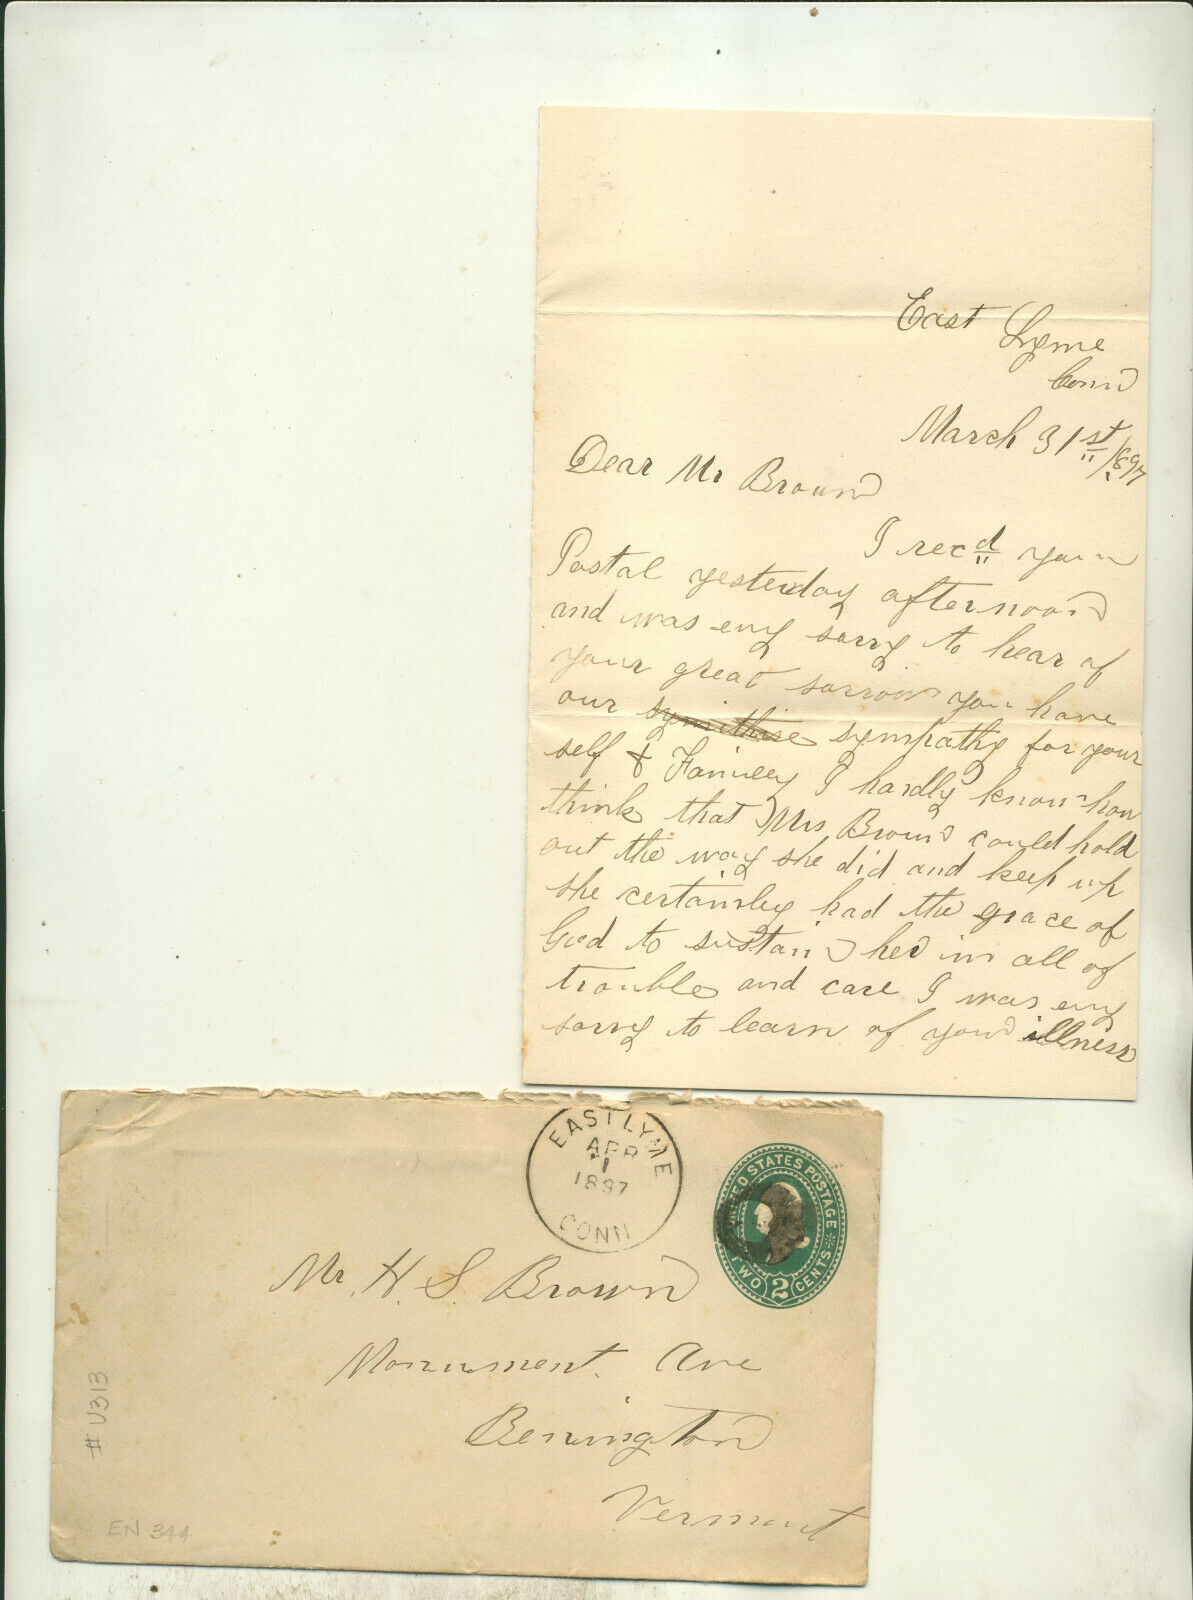 East Lyme
Conn
March 31st 1897
Dear Mr Brown
I recd your
Postal yesterday afternoon
and was very sorry to hear of
your great sorrow you have
our sympathy for your
self & Familey I hardly know how
think that Mrs Brown could hold
out the way she did and keep up
she certainley had the grace of
God to sustain her in all of
trouble and care I was very
sorry to learn of your illness
EAST LYME
APR
1
1897
CONN
UNITED STATES POSTAGE
TWO 2 CENTS
Mr. H. S. Brown
Monument. Ave
Bennington
Vermont
# U313
EN 344